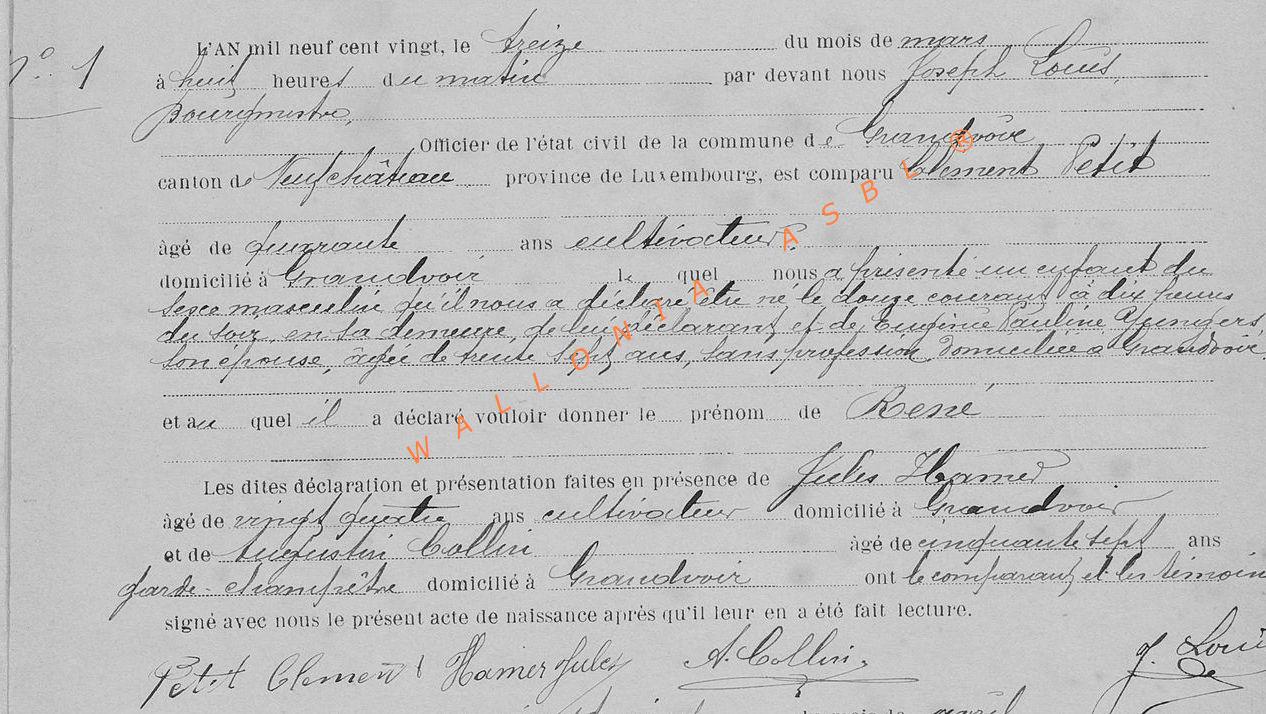 N° 1
L'AN mil neuf cent vingt, le treize du mois de mars
à huit heures du matin par devant nous Joseph Louis,
Bourgmestre,
Officier de l'état civil de la commune de Grandvoir
canton de Neufchâteau province de Luxembourg, est comparu Clement Petit
âgé de quarante ans cultivateur
domicilié à Grandvoir lequel nous a présenté un enfant du
sexe masculin qu'il nous a déclaré être né le douze courant à dix heures
du soir, en sa demeure, de lui déclarant et de Eugénie Pauline
son épouse, âgée de trente sept ans, sans profession, domiciliée à Grandvoir
et au quel il a déclaré vouloir donner le prénom de René
Les dites déclaration et présentation faites en présence de Jules Hamer
âgé de vingt quatre ans cultivateur domicilié à Grandvoir
et de Augustin Collin âgé de cinquante sept ans
garde-champêtre domicilié à Grandvoir ont le comparant et les témoins
signé avec nous le présent acte de naissance après qu'il leur en a été fait lecture.
Petit Clement Hamer Jules A. Collin. J. Louis
avril
WALLONIA ASBL ®